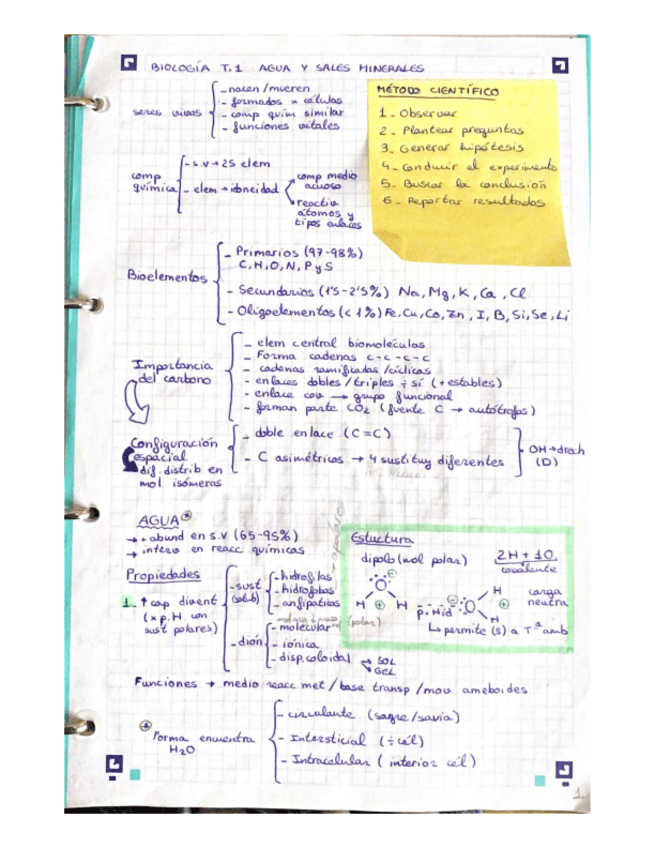 BIOLOGÍA T.1 AGUA Y SALES MINERALES
seres vivos
- nacen/mueren
- formados x células
- comp quím similar
- funciones vitales
MÉTODO CIENTÍFICO
1- Observar
2- Plantear preguntas
3- Generar hipótesis
4- Conducir el experimento
5- Buscar la conclusión
6- Reportar resultados
comp química
- s.v → 25 elem
- elem → idoneidad
comp medio acuoso
reactiv átomos y tipos enlaces
Bioelementos
- Primarios (97-98%)
C, H, O, N, P y S
- Secundarios (1'5-2'5%) Na, Mg, K, Ca, Cl
- Oligoelementos (<1%) Fe, Cu, Co, Zn, I, B, Si, Se, Li
Importancia
del carbono
- elem central biomoléculas
- Forma cadenas c-c-c-c
- cadenas ramificadas/cíclicas
- enlaces dobles/triples ÷ sí (+ estables)
- enlace cov → grupo funcional
- forman parte CO₂ (fuente C → autótrofos)
Configuración
espacial
dif. distrib en
mol. isómeras
- doble enlace (C=C)
- C asimétricos → 4 sustituy diferentes
OH → drech
(D)
AGUA
→ + abund en s.v (65-95%)
→ interv en reacc químicas
Propiedades
1- ↑ cap divent
(x p.H con
sust polares)
- sust
(solub)
- hidrofilas
- hidrofobas
- anfipáticas
- dión
- molecular
(polar)
- iónica
- disp.coloidal
SOL
GEL
Estuctura
dipolo (mol polar)
2H + 1O
covalente
O
H H
p.Hid
O
H
H
carga
neutra
↳ permite (s) a Tª amb
Funciones → medio reacc met/base transp/mov ameboides
Forma encuentra
H₂O
- circulante (sagre/savia)
- Intersticial (÷ cél)
- Intracelular (interior cél)
1